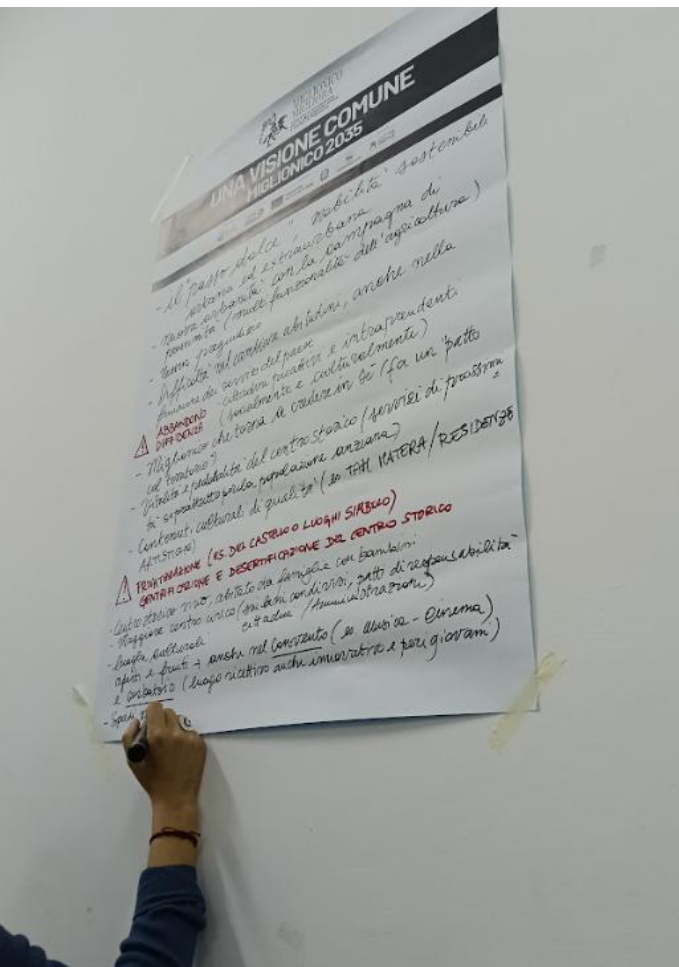 MIGLIONICO
UNA VISIONE COMUNE
MIGLIONICO 2035
- il "passo dolce", mobilità sostenibile
urbana ed extraurbana
- nuova urbanità con la campagna di
prossimità (multifunzionalità dell'agricoltura)
- nessun pregiudizio
- difficoltà nel cambiare abitudini, anche nella
fruizione dei servizi del paese
ABBANDONO
DIFFIDENZA
cittadini creativi e intraprendenti
(socialmente e culturalmente)
- Miglionico che torna a credere in sè (fa un "patto
col territorio")
- Vitalità e pedonalità del centro storico (servizi di prossimi=
tà soprattutto per la popolazione anziana)
- Contenuti culturali di qualità (es TAM MATERA/RESIDENZE
ARTISTICHE)
PRIVATIZZAZIONE (ES. DEL CASTELLO O LUOGHI SIMBOLO)
GENTRIFICAZIONE E DESERTIFICAZIONE DEL CENTRO STORICO
- Centro storico vivo, abitato da famiglie con bambini
- Maggiore centro civico (sui beni condivisi, patti di responsabilità
cittadini/Amministrazioni)
- luoghi culturali
aperti e fruiti → anche nel Convento (es Musica - Cinema)
e (luogo ricettivo anche innovativo e per i giovani)
- Spazi